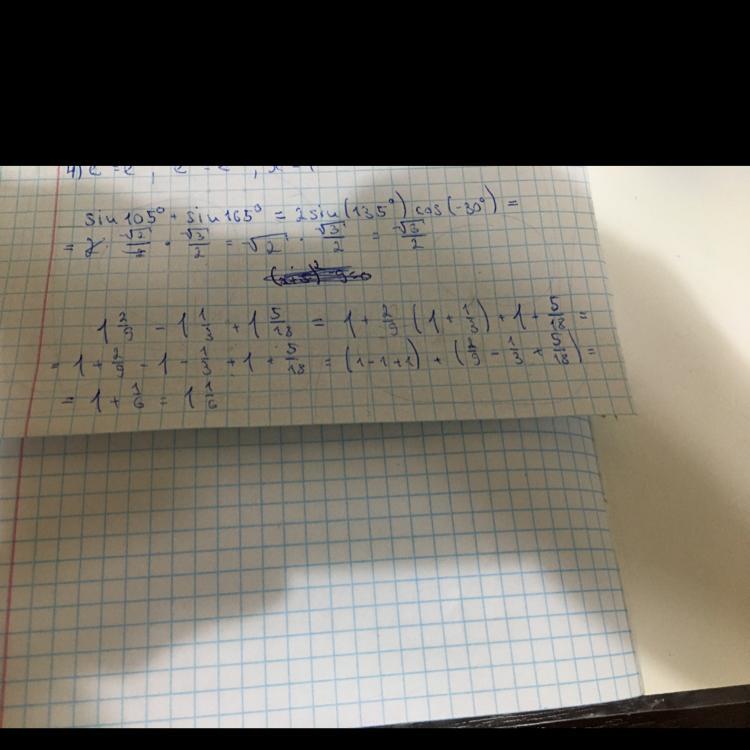 sin 105° + sin 165° = 2 sin(135°) cos(-30°) =
= 2 · √2/2 · √3/2 = √2 · √3/2 = √6/2
1 2/9 - 1 1/3 + 1 5/18 = 1 + 2/9 (1 + 1/3) + 1 + 5/18 =
= 1 + 2/9 - 1 - 1/3 + 1 + 5/18 = (1-1+1) + (2/9 - 1/3 + 5/18) =
= 1 + 1/6 = 1 1/6